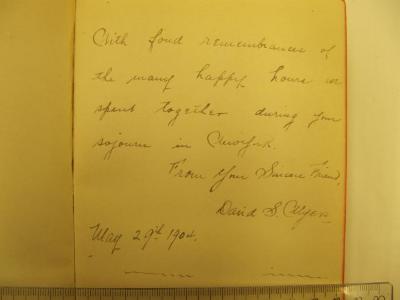 With fond remembrances of
the many happy hours we
spent together during your
sojourn in New York.
From Your Sincere Friend,
David S.
May 29th 1904.